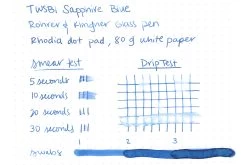 TWSBI Sapphire Blue
Rohrer & Klingner Glass pen
Rhodia dot pad, 80 g white paper
Smear Test
Drip Test
5 seconds
10 seconds
20 seconds
30 seconds
1 2 3
Swabs